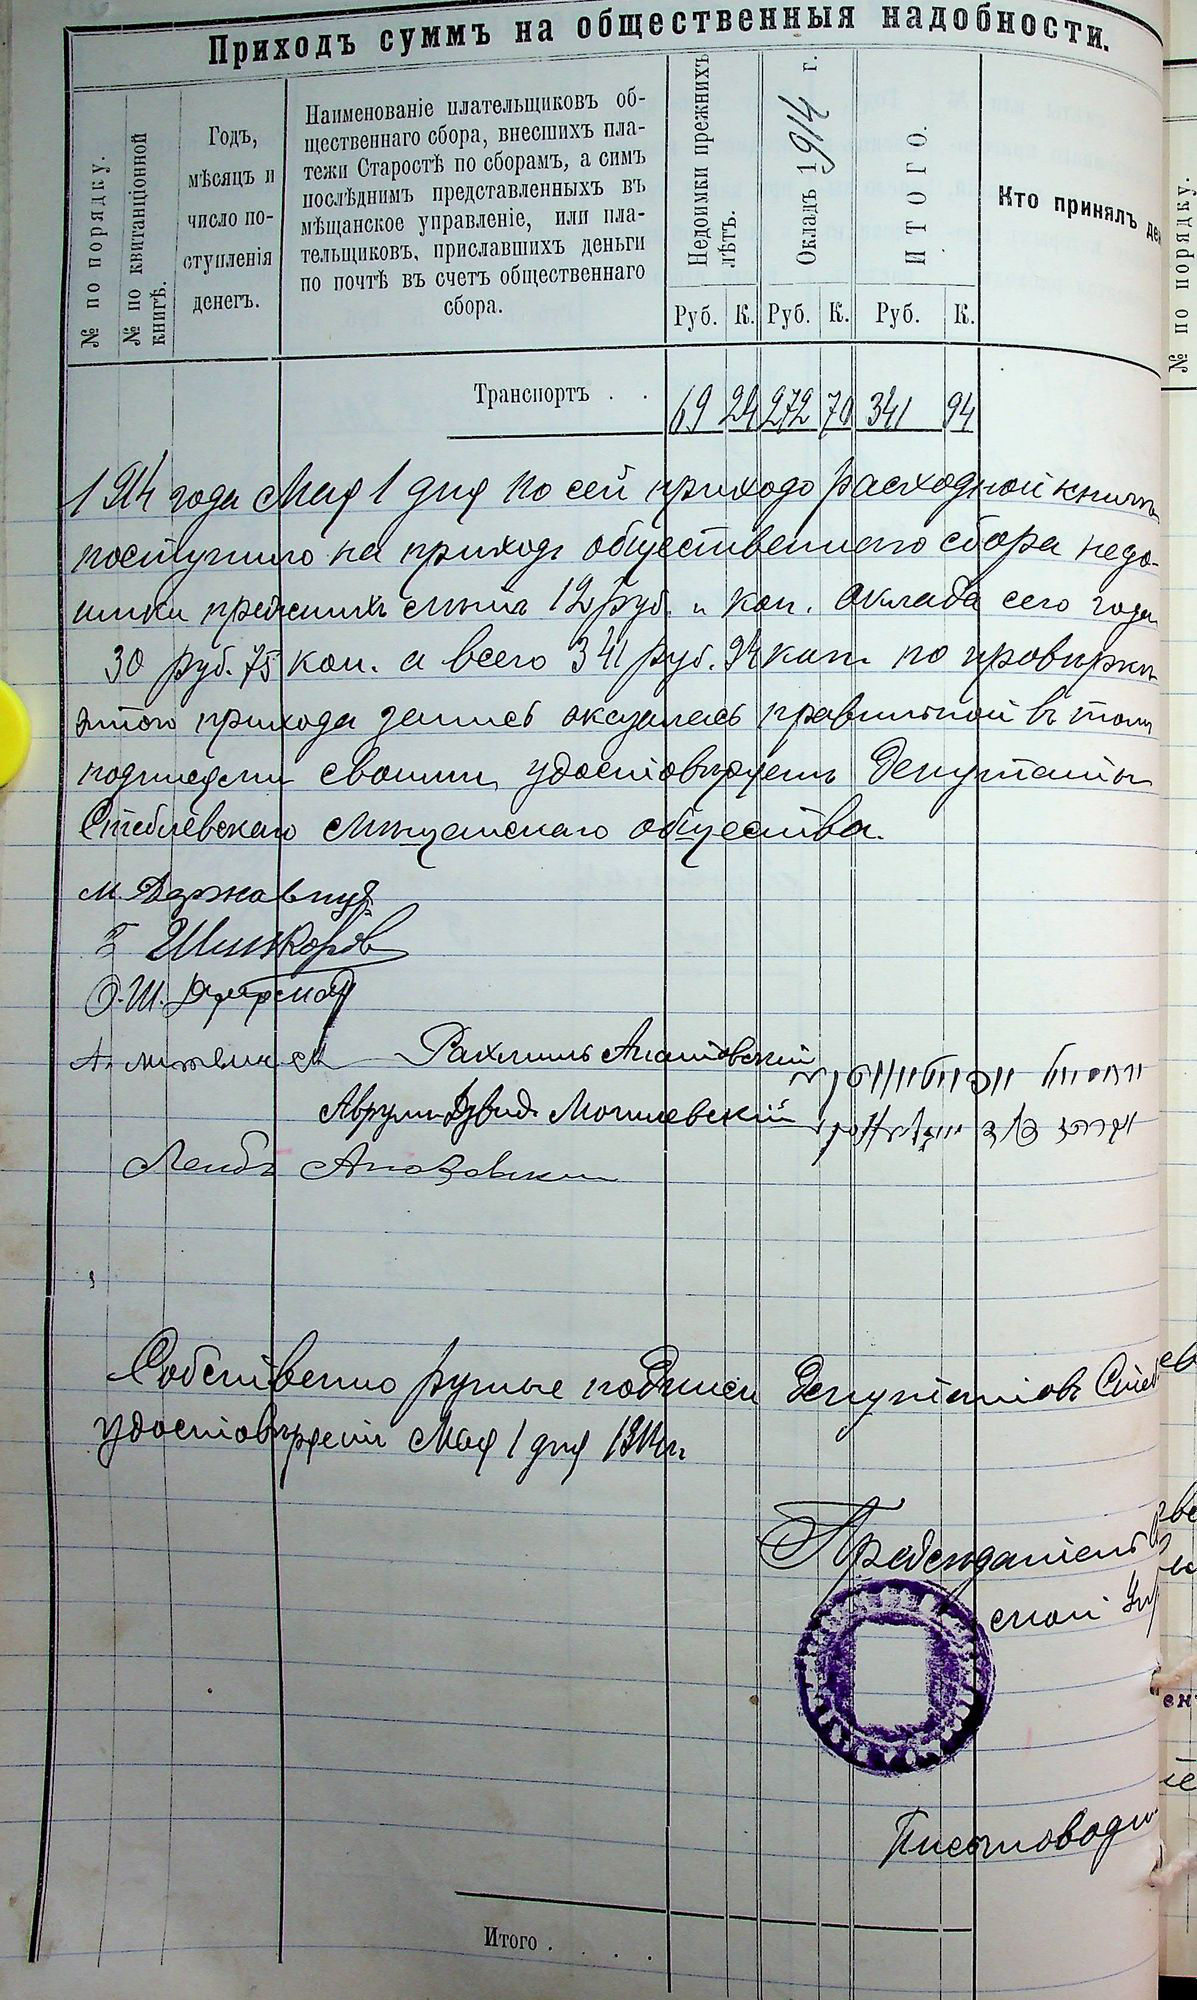 Приходъ суммъ на общественныя надобности.
№ по порядку.
№ по квитанціонной
книгѣ.
Годъ,
мѣсяцъ и
число по-
ступленія
денегъ.
Наименованіе плательщиковъ об-
щественнаго сбора, внесшихъ пла-
тежи Старостѣ по сборамъ, а симъ
послѣднимъ представленныхъ въ
мѣщанское управленіе, или пла-
тельщиковъ, приславшихъ деньги
по почтѣ въ счетъ общественнаго
сбора.
Недоимки прежнихъ
лѣтъ.
Окладъ 1914 г.
ИТОГО.
Кто принялъ ден
№ по порядку.
Руб. К. Руб. К. Руб. К.
Транспортъ . . 69 24 272 70 341 94
1914 года Мая 1 дня по сей приходо расходной книгѣ
поступило на приходъ общественнаго сбора недо-
имки прежнихъ 12 руб. " коп. оклада сего года
30 руб. 75 коп. а всего 341 руб. 94 коп. по провѣрки
этого прихода запись оказалась правильной въ томъ
подписями своими удостовѣряемъ Депутаты
Стеблевскаго Мѣщанскаго общества.
М. Державец
Шинкоров
О. Ш.
А.
Рахмиль
Аврумъ Дувидъ Могилевскій
Лейбъ
Собственно ручные подписи Депутатовъ Стеб
удостовѣряетъ Мая 1 дня 1914 г.
Предсѣдатель
ской Упр
Письмоводи
Итого . . . .